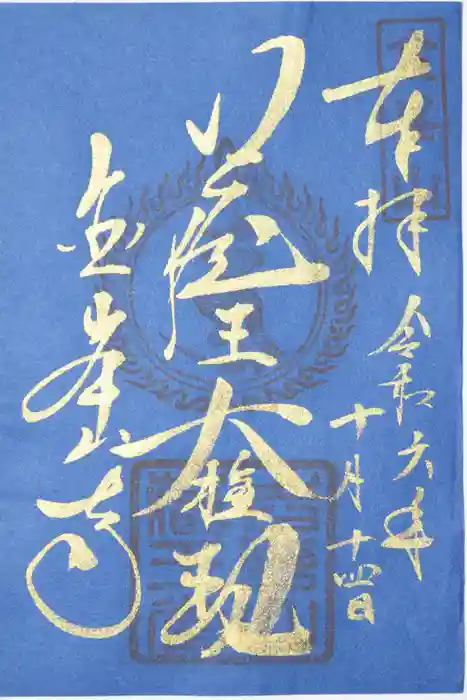 奉拝
令和六年
十月十四日
蔵王大権現
金峯山寺